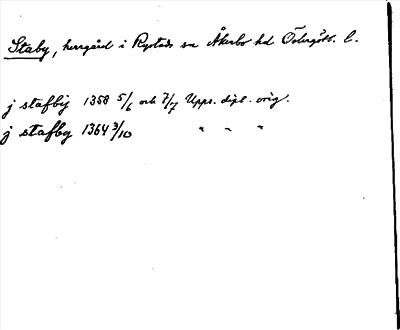 Staby, herrgård i Rystads sn Åkerbo hd Östergötl. l.
j stafby 1358 5/6 och 7/7 Upps. dipl. orig.
j stafby 1364 3/10 " " "